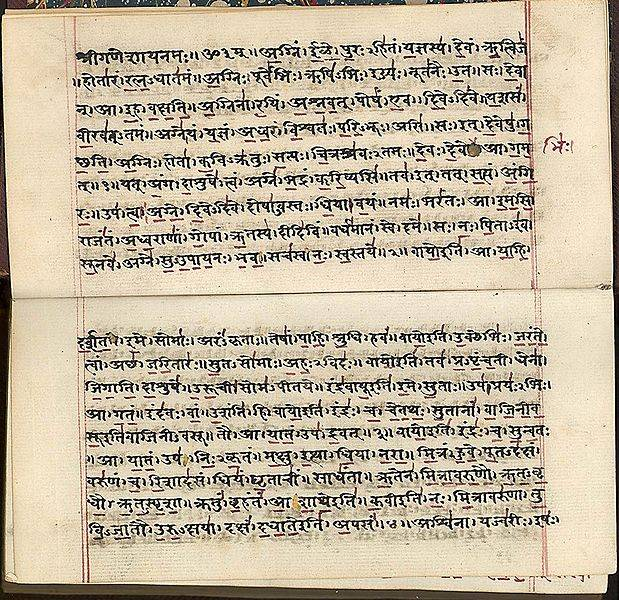 श्रीगणेशायनमः॥ॐ३म्॥ अग्निं। ईळे। पुरःऽहितं। यज्ञस्य। देवं। ऋत्विजं
॥होतारं। रत्नऽधातमं॥ अग्निः। पूर्वेभिः। ऋषिऽभिः। ईड्यः। नूतनैः। उत॥ सः। देवा
न्। आ। इह। वक्षति॥ अग्निना। रयिं। अश्नवत्। पोषं। एव। दिवेऽदिवे॥ यशसं
वीरवत्ऽतमं॥ अग्ने। यं। यज्ञं। अध्वरं। विश्वतः। परिऽभूः। असि॥ सः। इत्। देवेषु। ग
च्छति॥ अग्निः। होता। कविऽक्रतुः। सत्यः। चित्रश्रवःऽतमः॥ देवः। देवे। आ। गम भिः।
त्॥१॥ यत्। अंग। दाशुषे। त्वं। अग्ने। भद्रं। करिष्यसि॥ तव। इत्। तत्। सत्यं। अंगि
रः॥ उप। त्वा। अग्ने। दिवेऽदिवे। दोषाऽवस्तः। धिया। वयं॥ नमः। भरंतः। आ। इमसि॥
राजंतं। अध्वराणां। गोपां। ऋतस्य। दीदिविं॥ वर्धमानं। स्वे। दमे॥ सः। नः। पिताऽइव
सूनवे। अग्ने। सुऽउपायनः। भव॥ सचस्व। नः। स्वस्तये॥२॥ वायोइति। आ। याहि।
दर्शत। इमे। सोमाः। अरंऽकृताः॥ तेषां। पाहि। श्रुधि। हवं॥ वायोइति। उक्थेभिः। जरंते
त्वां। अच्छ। जरितारः॥ सुतऽसोमाः। अहःऽविदः॥ वायोइति। तव। प्रऽपृंचती। धेना।
जिगाति। दाशुषे॥ उरूची। सोमऽपीतये॥ इंद्रवायूइति। इमे। सुताः॥ उप। प्रयःऽभिः।
आ। गतं॥ इंदवः। वां। उशंति। हि॥ वायोइति। इंद्रः। च। चेतथः। सुतानां। वाजिनीव
सूइतिवाजिनीवसू॥ तौ। आ। यातं। उप। द्रवत्॥३॥ वायोइति। इंद्रः। च। सुन्वतः
॥आ। यातं। उप। निःऽकृतं॥ मक्षु। इत्था। धिया। नरा॥ मित्रं। हुवे। पूतऽदक्षं।
वरुणं। च। रिशादसं॥ धियं। घृताचीं। साधंता॥ ऋतेन। मित्रावरुणौ। ऋतऽवृ
धौ। ऋतऽस्पृशा॥ क्रतुं। बृहंतं। आशाथेइति॥ कवीइति। नः। मित्रावरुणा। तु
विऽजातौ। उरुऽक्षया॥ दक्षं। दधातेइति। अपसं॥४॥ अश्विना। यज्वरीः। इषः।